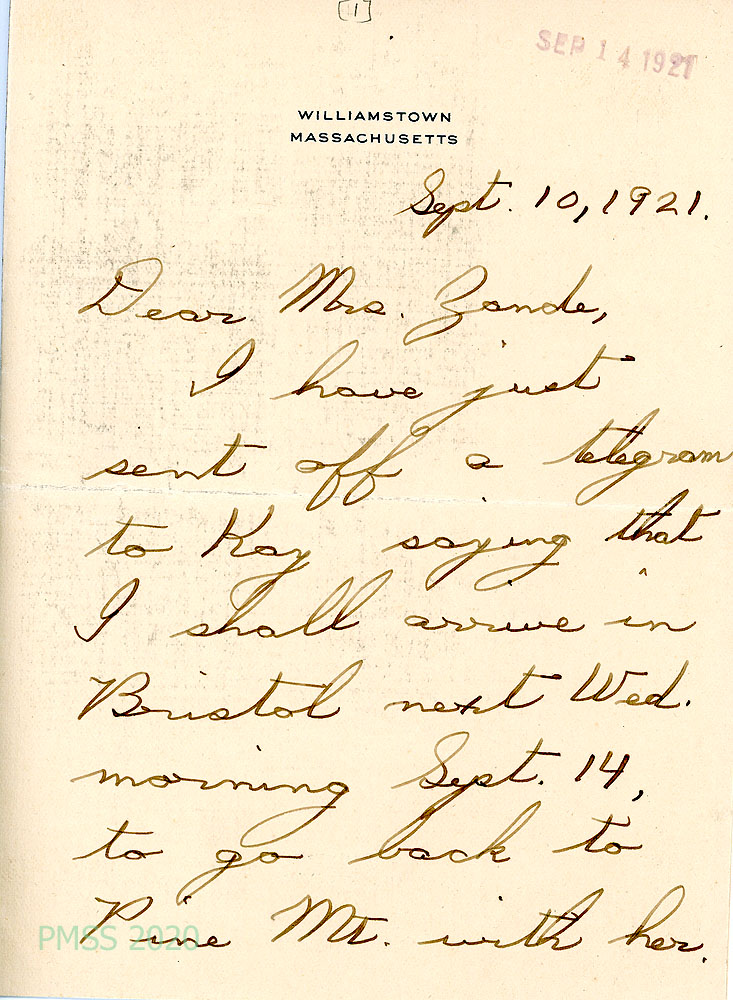 [1]
SEP 14 1921
WILLIAMSTOWN
MASSACHUSETTS
Sept. 10, 1921.
Dear Mrs. Zande,
I have just
sent off a telegram
to Kay saying that
I shall arrive in
Bristol next Wed.
morning Sept. 14,
to go back to
Pine Mt. with her.
PMSS 2020